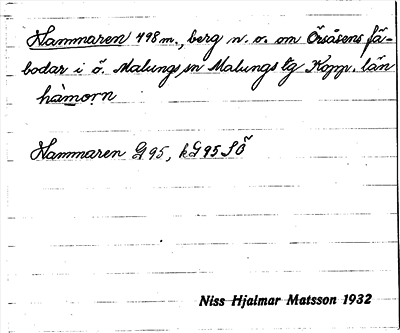 Hammaren 498 m., berg n. o. om Örsåsens fä-
bodar i ö. Malungs sn Malungs tg Kopp. län
hàmorn
Hammaren G 95, kG 95 SÖ
Niss Hjalmar Matsson 1932